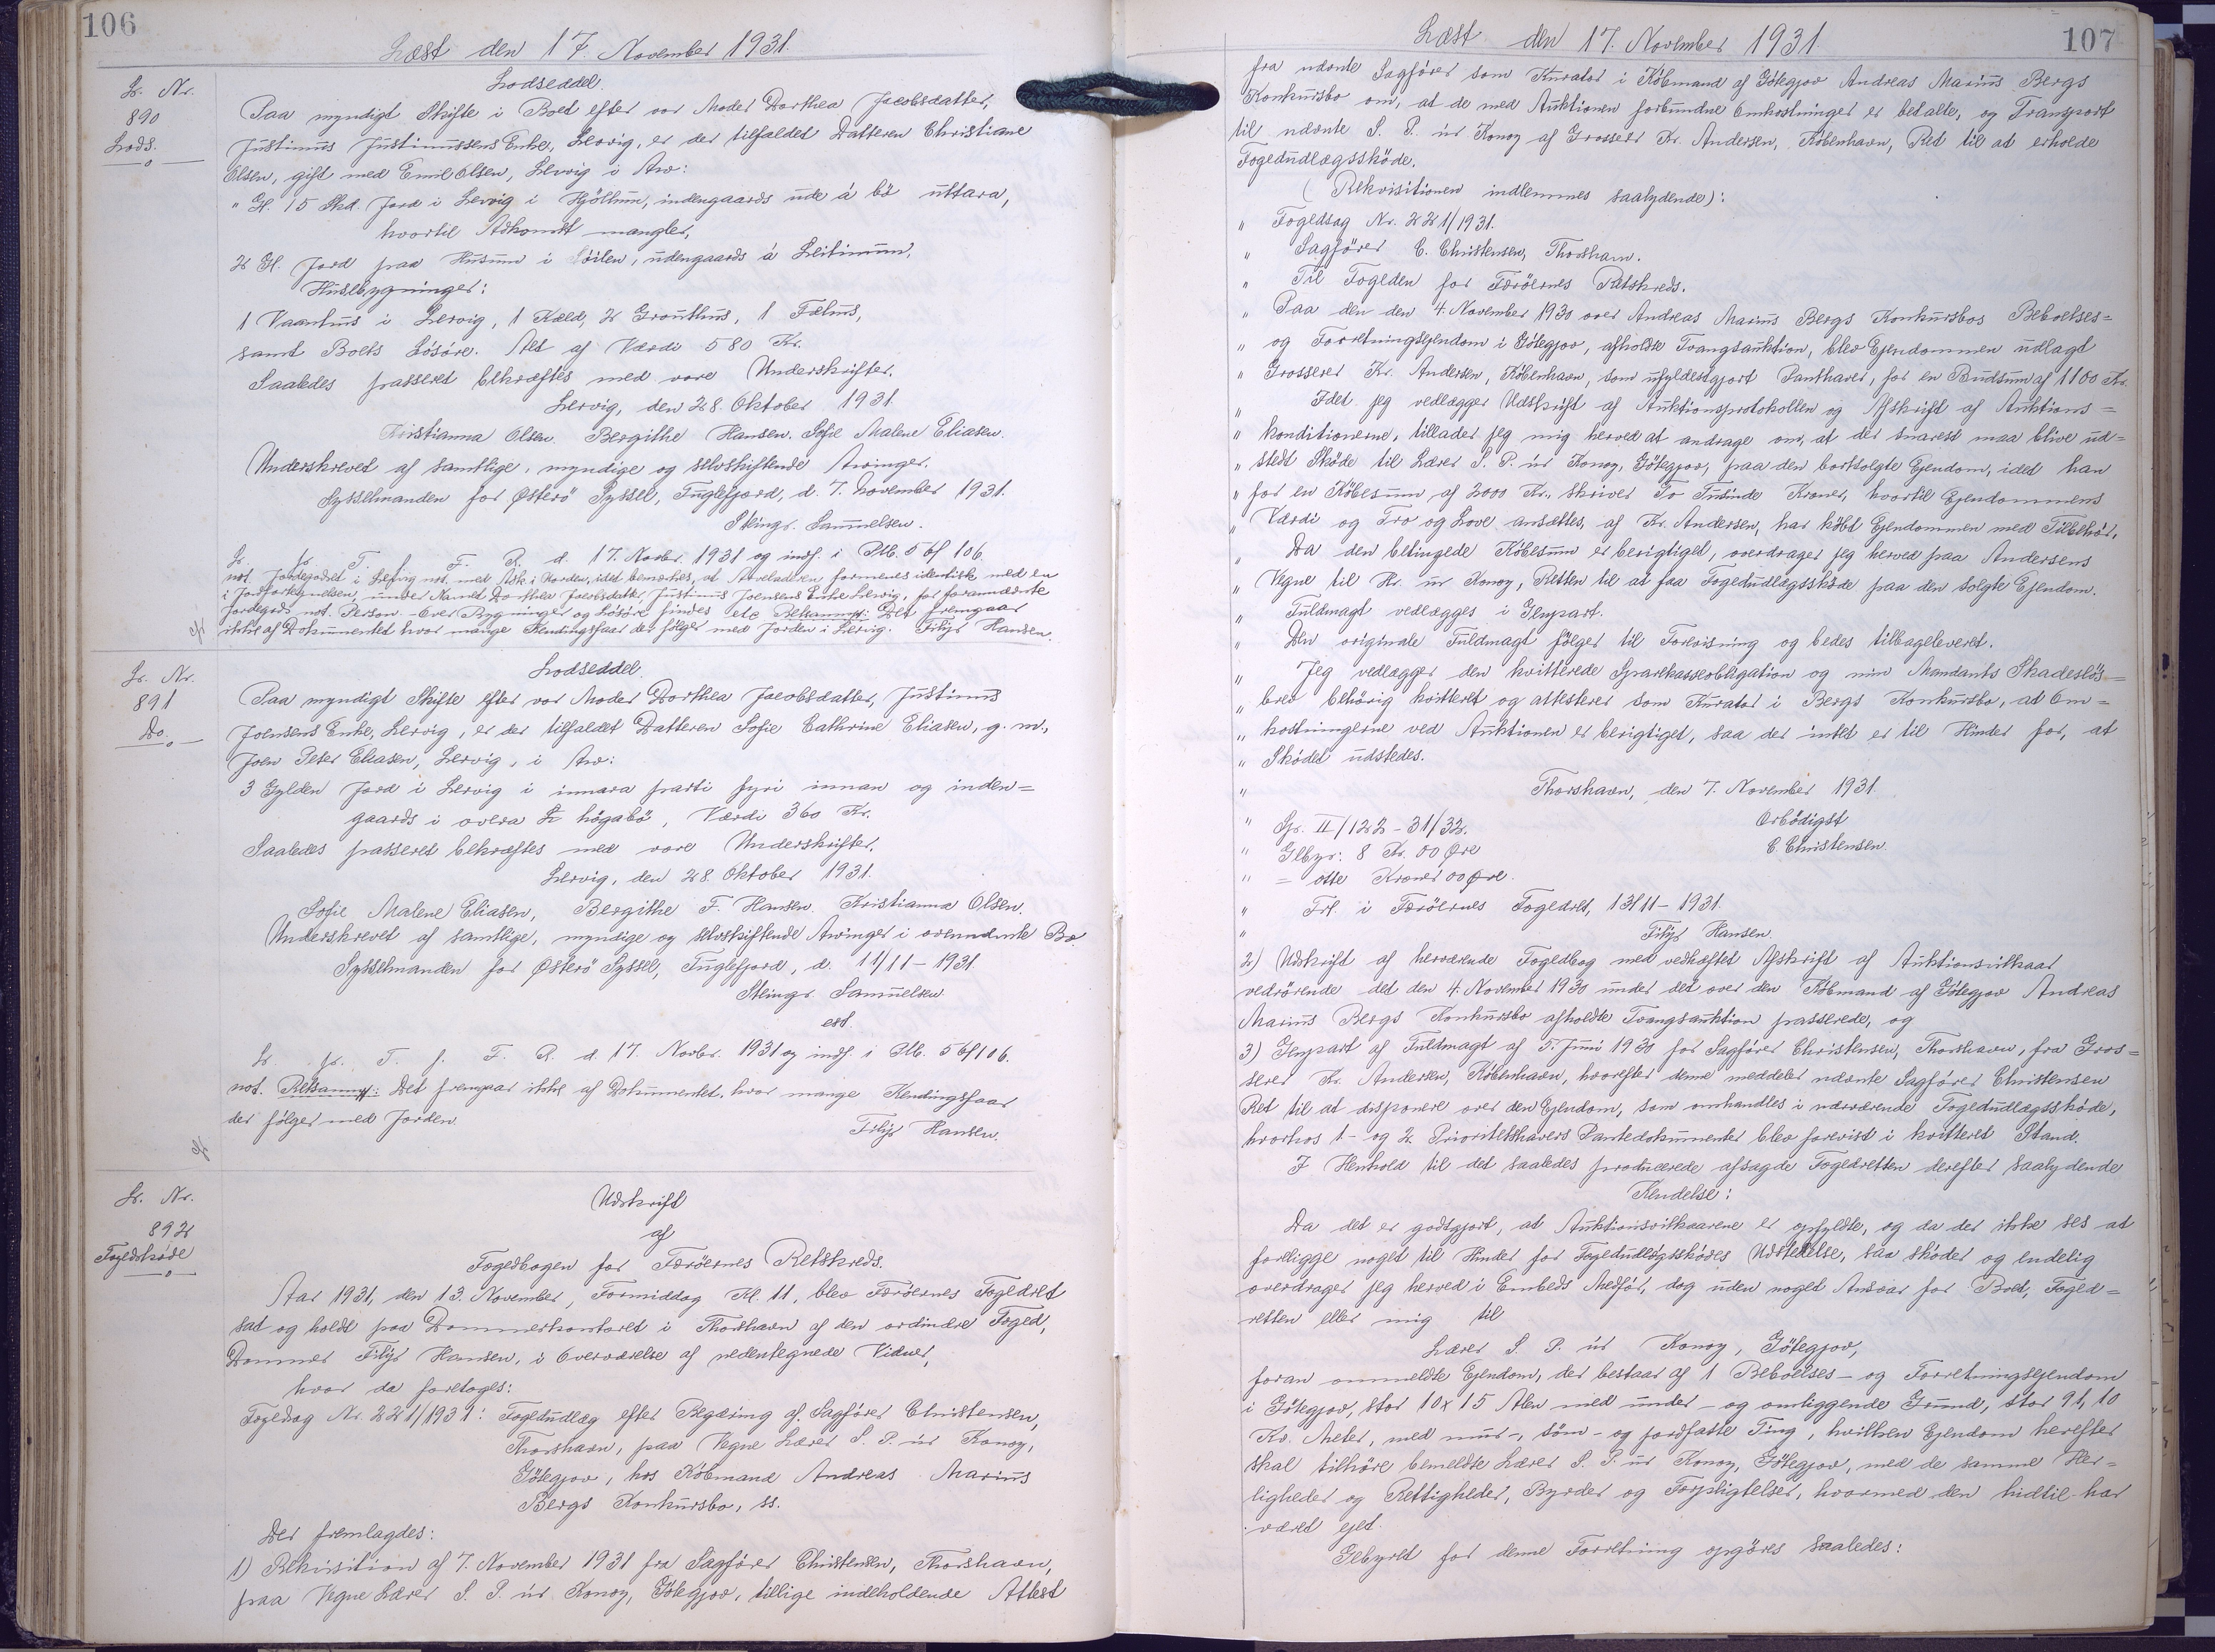 106
Læst den 17. November 1931.
L. Nr.
890
Lods.
Lodseddel.
Paa myndigt Skifte i Boet efter vor Moder Dorthea Jacobsdatter,
Justinus Justinussens Enke, Lervig, er der tilfaldet Datteren Christiane
Olsen, gift med Emil Olsen, Lervig i Arv:
" Gl. 15 Skd. Jord i Lervig i Hjöllum, indengaards ude á bö uttara,
hvortil Adkomst mangler,
2 Gl. Jord paa Husum i udengaards á Leitinum,
Husebygninger:
1 Vaanhus i Lervig, 1 Kæld, 2 Grouthus, 1 Fæhus,
samt Boets Lösöre. Alt af Værdi 580 Kr.
Saaledes passeret bekræftes med vore Underskrifter.
Lervig, den 28. Oktober 1931.
Kristianna Olsen. Bergithe Hansen. Sofie Malene Eliasen.
Underskrevet af samtlige, myndige og selvskiftende Arvinger.
Sysselmanden for Österö Syssel, Fuglefjord, d. 7. November 1931.
Steingr. Samuelsen.
L. fr. T. f. F. R. d. 17. Novbr. 1931 og indf. i Ptb. 5 bf 106.
not. Jordegodset i Lervig not. med Adk. i Norden, idet bemærkes, at Arveladeren formenes identisk med en
i Jordfortegnelsen, under Navnet Dorthea Jacobsdatter, Justinus Joensens Enke Lervig, for forannævnte
Jordegods not. Person. Over Bygninger og Lösöre findes etc Retsanm: Det fremgaar
ikke af Dokumentet hvor mange Kendingsfaar der fölger med Jorden i Lervig. Filip Hansen.
L. Nr.
891
Do.
Lodseddel.
Paa myndigt Skifte efter vor Moder Dorthea Jacobsdatter, Justinus
Joensens Enke, Lervig, er der tilfaldet Datteren Sofie Cathrine Eliasen, g. m.,
Joen Peter Eliasen, Lervig, i Arv:
3 Gylden Jord i Lervig i innara parti fyri innan og inden=
gaards i övera högabö, Værdi 360 Kr.
Saaledes passeret bekræftes med vore Underskrifter.
Lervig, den 28. Oktober 1931.
Sofie Malene Eliasen, Bergithe F. Hansen. Kristianna Olsen.
Underskrevet af samtlige, myndige og selvskiftende Arvinger i ovennævnte Bo.
Sysselmanden for Österö Syssel, Fuglefjord, d. 11/11-1931.
Steingr. Samuelsen
cst.
L. fr. T. f. F. R. d. 17. Novbr. 1931 og indf. i Ptb. 5 bf 106.
not. Retsanm: Det fremgaar ikke af Dokumentet, hvor mange Kendingsfaar
der fölger med Jorden.
Filip Hansen.
L. Nr.
892
Fogedsköde
Udskrift
af
Fogedbogen for Færöernes Retskreds.
Aar 1931, den 13. November, Formiddag Kl. 11, blev Færöernes Fogedret
sat og holdt paa Dommerkontoret i Thorshavn af den ordinære Foged,
Dommer Filip Hansen, i Overværelse af nedentegnede Vidner,
hvor da foretoges:
Fogedsag Nr. 221/1931: Fogedudlæg efter Begæring af Sagförer Christensen,
Thorshavn, paa Vegne Lærer S. P. úr Konoy,
Götegjov, hos Köbmand Andreas Marius
Bergs Konkursbo, ss.
Der fremlagdes:
1) Rekvisition af 7. November 1931 fra Sagförer Christensen, Thorshavn,
paa Vegne Lærer S. P. úr Konoy, Götegjov, tillige indeholdende Attest
107
Læst den 17. November 1931
fra nævnte Sagförer som Kurator i Köbmand af Götegjov Andreas Marius Bergs
Konkursbo om, at de med Auktionen forbundne Omkostninger er betalte, og Transport
til nævnte S. P. úr Konoy af Grosserer Kr. Andersen, Köbenhavn, Ret til at erholde
Fogedudlægssköde.
(Rekvisitionen indlemmes saalydende):
" Fogedsag Nr. 221/1931.
" Sagförer C. Christensen, Thorshavn.
" Til Fogeden for Færöernes Retskreds.
" Paa den den 4. November 1930 over Andreas Marius Bergs Konkursbos Beboelses=
" og Forretningsejendom i Götegjov, afholdte Tvangsauktion, blev Ejendommen udlagt
" Grosserer Kr. Andersen, Köbenhavn, som ufyldestgjort Panthaver, for en Budsum af 1100 Kr.
" Idet jeg vedlægger Udskrift af Auktionsprotokollen og Afskrift af Auktions=
" konditionerne, tillader jeg mig herved at andrage om, at der snarest maa blive ud=
" stedt Sköde til Lærer S. P. úr Konoy, Götegjov, paa den bortsolgte Ejendom, idet han
" for en Köbesum af 2000 Kr., skriver To Tusinde Kroner, hvortil Ejendommens
" Værdi og Tro og Love ansættes, af Kr. Andersen, har köbt Ejendommen med Tilbehör.
" Da den betingede Köbesum er berigtiget, overdrager jeg herved paa Andersens
" Vegne til Hr. úr Konoy, Retten til at faa Fogedudlægssköde paa den solgte Ejendom.
" Fuldmagt vedlægges i Genpart.
" Den originale Fuldmagt fölger til Forevisning og bedes tilbageleveret.
" Jeg vedlægger den kvitterede Sparekasseobligation og min Mandants Skadeslös=
" brev behörig kvitteret og attesterer som Kurator i Bergs Konkursbo, at Om=
" kostningerne ved Auktionen er berigtiget, saa der intet er til Hinder for, at
" Sködet udstedes.
" Thorshavn, den 7. November 1931.
" Gr. II/122-31/32. Ærbödigst
" Gebyr: 8 Kr. 00 Øre C. Christensen.
" = otte Kroner 00 Øre.
" Frl. i Færöernes Fogedret, 13/11-1931.
" Filip Hansen.
2) Udskrift af herværende Fogedbog med vedhæftet Afskrift af Auktionsvilkaar
vedrörende det den 4. November 1930 under det over den Köbmand af Götegjov Andreas
Marius Bergs Konkursbo afholdte Tvangsauktion passerede, og
3) Genpart af Fuldmagt af 5. Juni 1930 for Sagförer Christensen, Thorshavn, fra Gros=
serer Kr. Andersen, Köbenhavn, hvorefter denne meddeler nævnte Sagförer Christensen
Ret til at disponere over den Ejendom, som omhandles i nærværende Fogedudlægssköde,
hvorhos 1- og 2 Prioritetshavers Pantedokumenter blev forevist i kvitteret Stand.
I Henhold til det saaledes producerede afsagde Fogedretten derefter saalydende
Kendelse:
Da det er godtgjort, at Auktionsvilkaarene er opfyldte, og da der ikke ses at
foreligge noget til Hinder for Fogedudlægssködes Udstedelse, saa sköder og endelig
overdrager jeg herved i Embeds Medför, dog uden noget Ansvar for Boet, Foged=
retten eller mig til
Lærer S. P. úr Konoy, Götegjov,
foran ommeldte Ejendom, der bestaar af 1 Beboelses- og Forretningsejendom
i Götegjov, stor 10 x 15 Alen med under- og omliggende Grund, stor 91,10
Kv. Meter, med mur-, söm- og jordfaste Ting, hvilken Ejendom herefter
skal tilhöre bemeldte Lærer S. P. úr Konoy, Götegjov, med de samme Her=
ligheder og Rettigheder, Byrder og Forpligtelser, hvormed den hidtil har
været ejet.
Gebyret for denne Forretning opgöres saaledes: